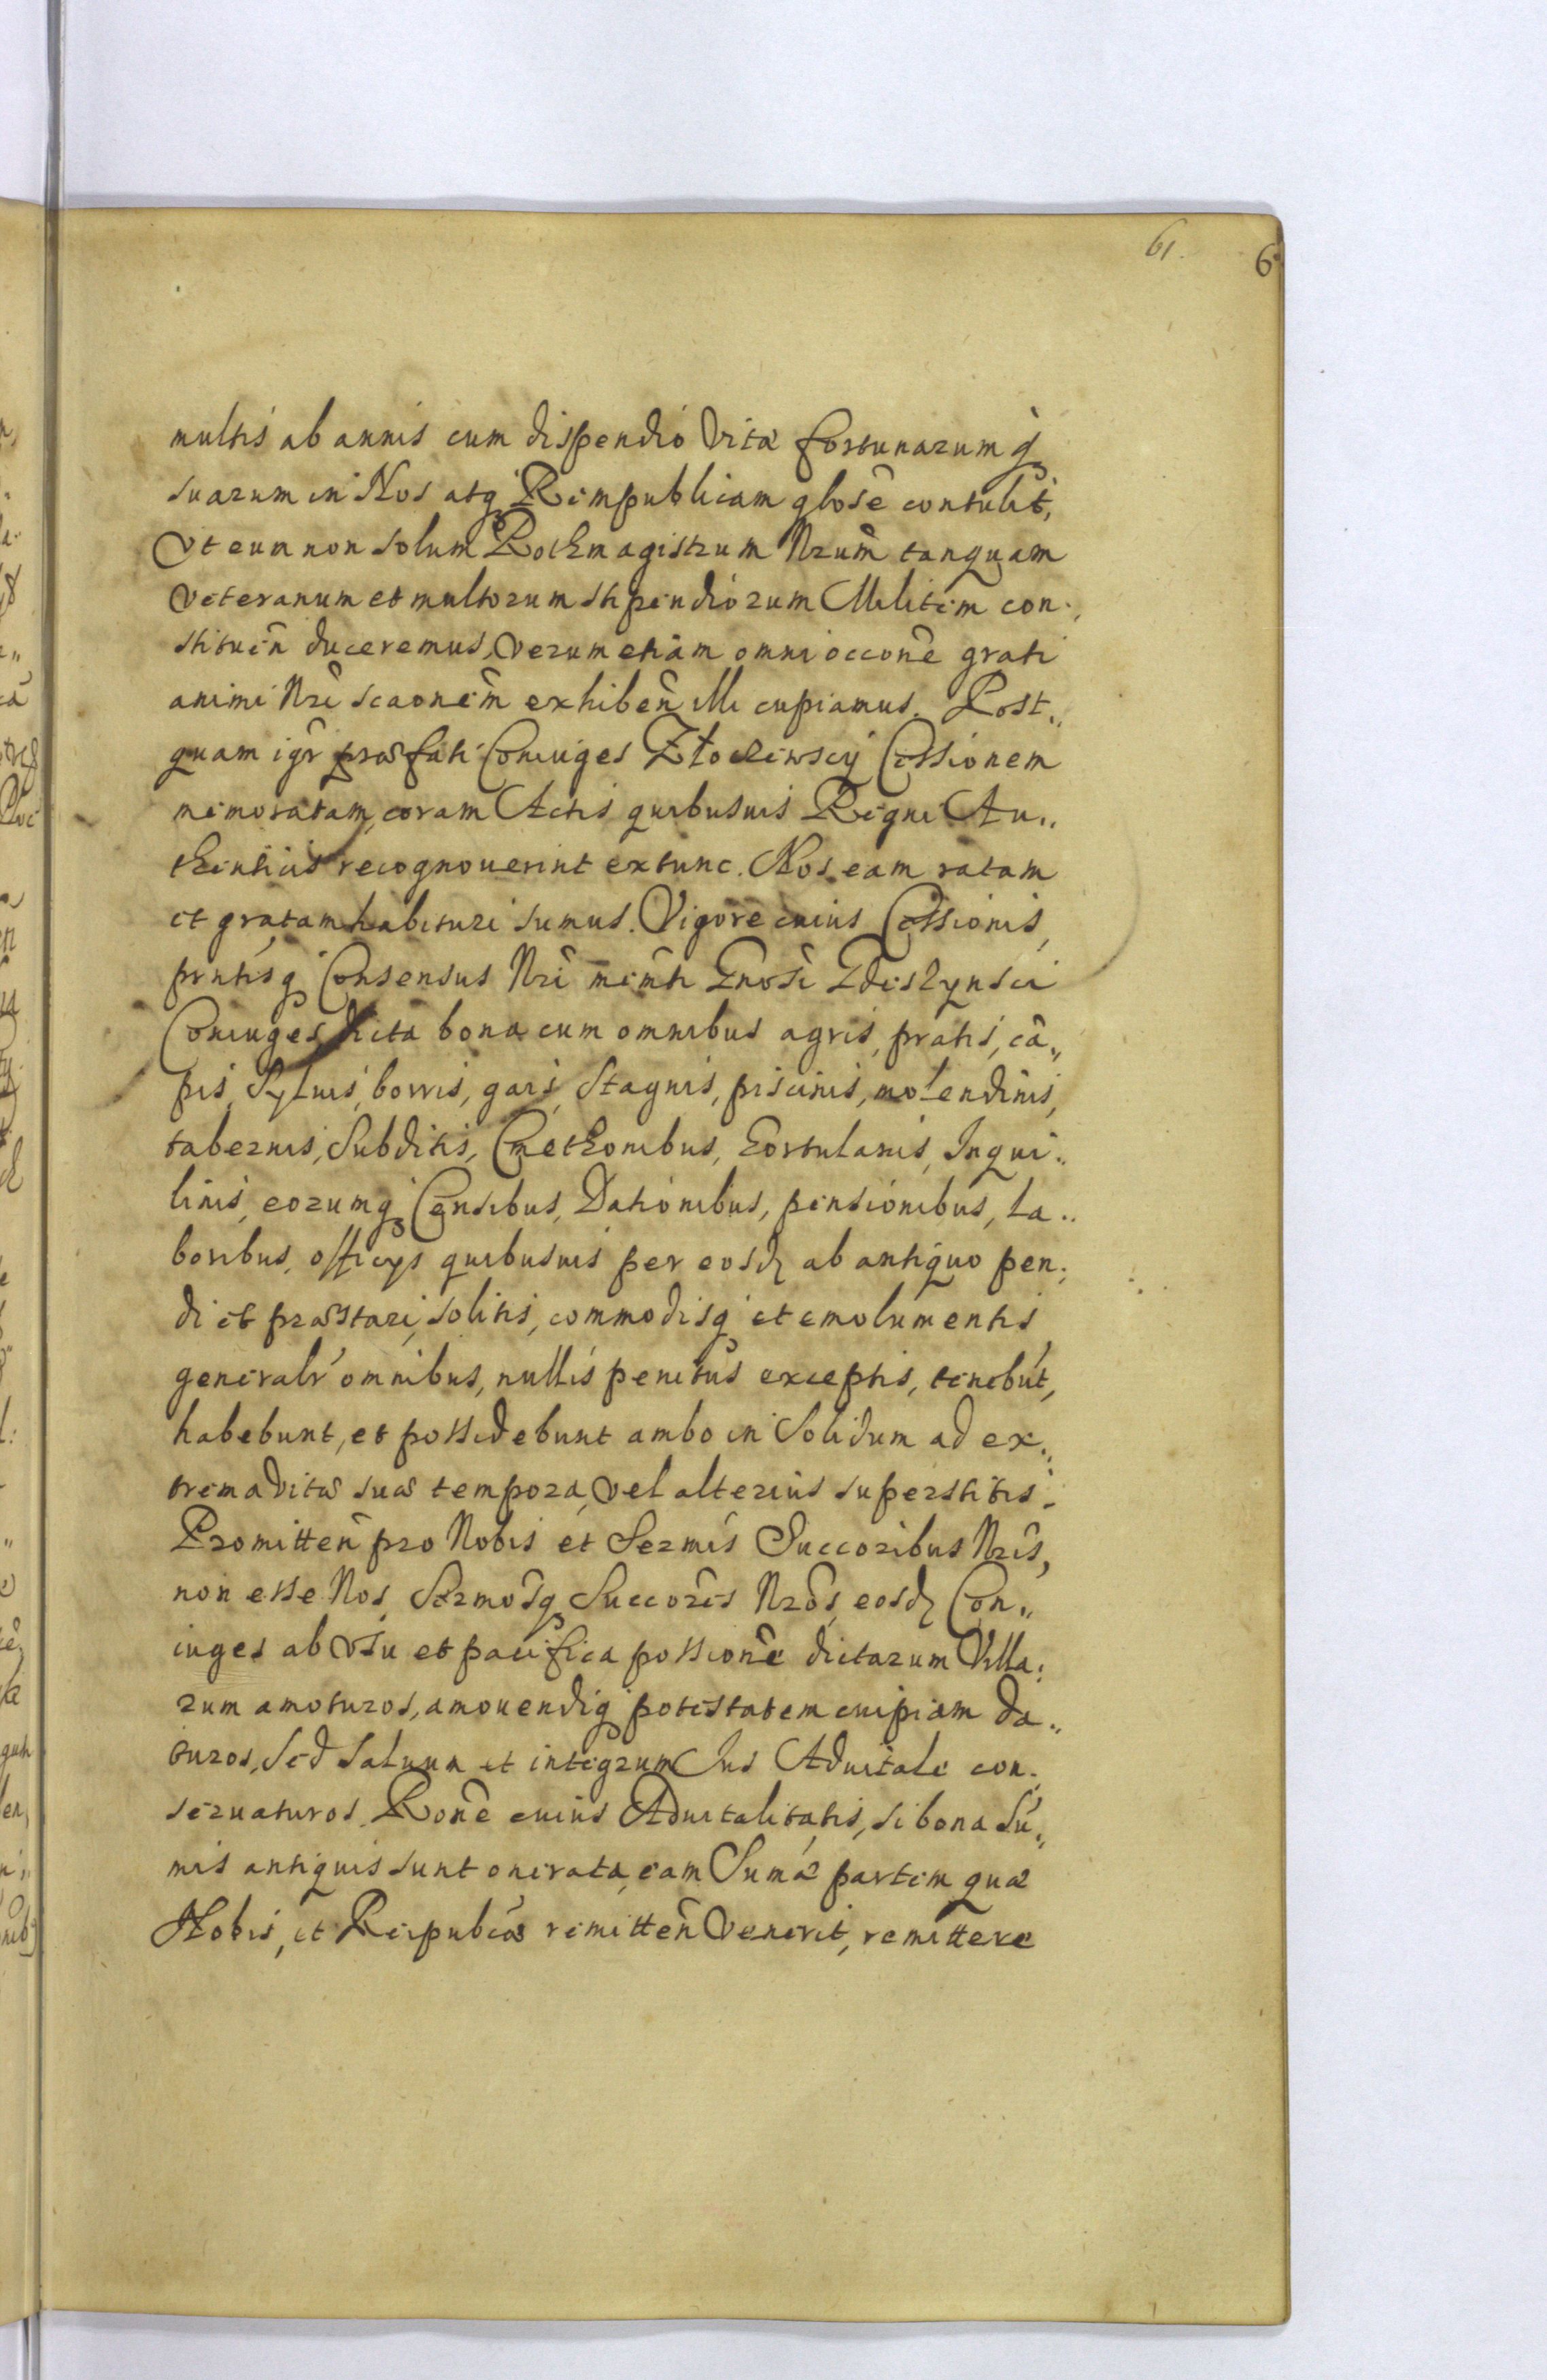 61.
6
multis ab annis cum dispendio Vitæ fortunarumq̃
suarum in Nos atq̃ Rempublicam glosẽ contulit,
Vt eum non solum Rothmagistrum Nrum̃ tanquam
Veteranum et multorum stipendiorum Militem con:
stituen̄ duceremus, Verum etiam omni occonẽ grati
animi Nri scaonem̃ exhiben̄ illi cupiamus. Post„
quam igr̃ præfati Coniuges Złockiewscÿ Cessionem
memoratam, coram Actis quibusuis Regni Au„
thenticis recognouerint extunc. Nos eam ratam
et gratam habituri sumus. Vigore cuius Cessionis,
pn̄tisq̃ Consensus Nri mem̃ti Gnosi Zdeslynscii
Coniuges dicta bona cum omnibus agris, pratis, cã„
pis, Syluis, borris, gais, Stagnis, piscinis, molendinis,
tabernis, Subditis, Cmethonibus, Hortulanis, Inqui„
linis, eorumq̃ Censibus, Dationibus, pensionibus, la„
boribus, officÿs quibusuis per eosd ab antiquo pen:
di et præstari, solitis, commodisq̃ et emolumentis
generalr̃ omnibus, nullis penitus exceptis, tenebũt,
habebunt, et possidebunt ambo in Solidum ad ex„
trema vitæ suæ tempora, Vel alterius superstitis.
Promitten̄ pro Nobis et Sermis̃ Succoribus Nris̃,
non esse Nos, Sermosq̃ Succores̃ Nros̃, eosd Con„
iuges ab Vsu et pacifica possionẽ dictarum Villa:
rum amoturos, amouendiq̃ potestatem cuipiam da„
turos, Sed Saluum et integrum Ius Aduitale con:
seruaturos. Ronẽ cuius Aduitalitatis, si bona Sũ„
mis antiquis sunt onerata, eam Sumæ partem quæ
Nobis, et Reipubcæ remitten̄ Venerit, remittere